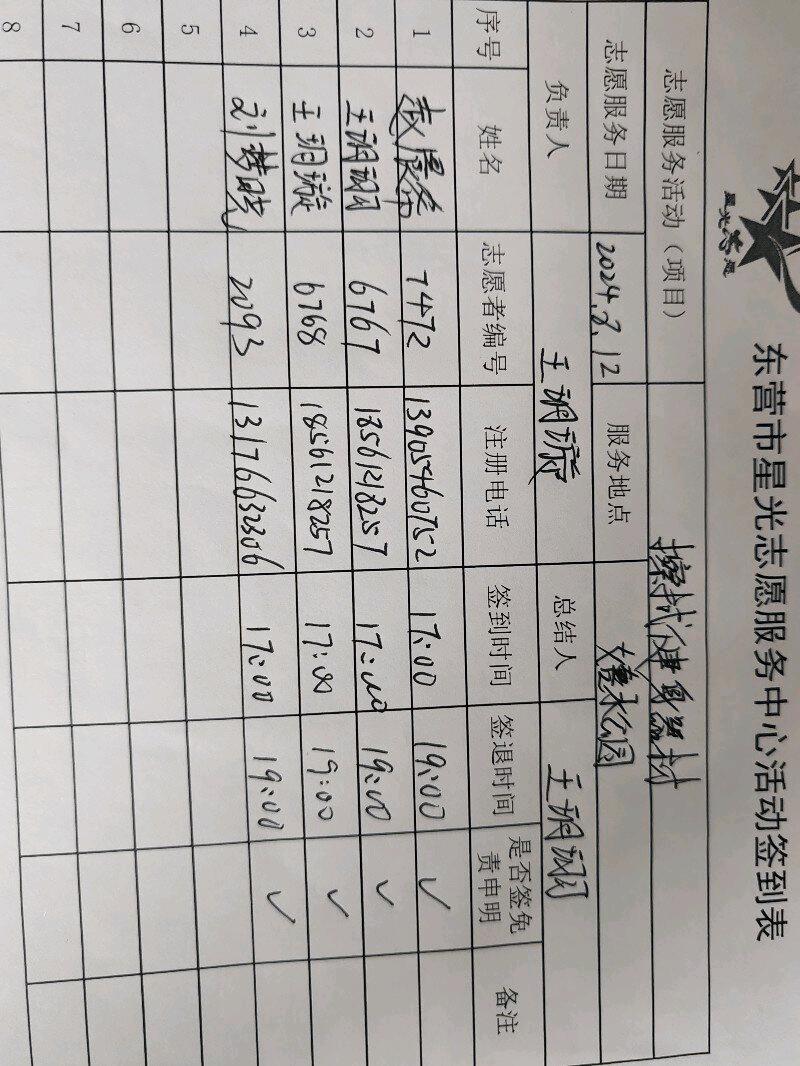 东营市星光志愿服务中心活动签到表
志愿服务活动（项目） 擦拭健身器材
志愿服务日期 2024.8.12 服务地点 公园
负责人 王玥 总结人 王玥
序号 姓名 志愿者编号 注册电话 签到时间 签退时间 是否签免责申明 备注
1 7472 13905460752 17:00 19:00 ✓
2 王玥 6767 18561218257 17:00 19:00 ✓
3 王玥璇 6768 18561218257 17:00 19:00 ✓
4 刘梦 2093 13176632306 17:00 19:00 ✓
5
6
7
8